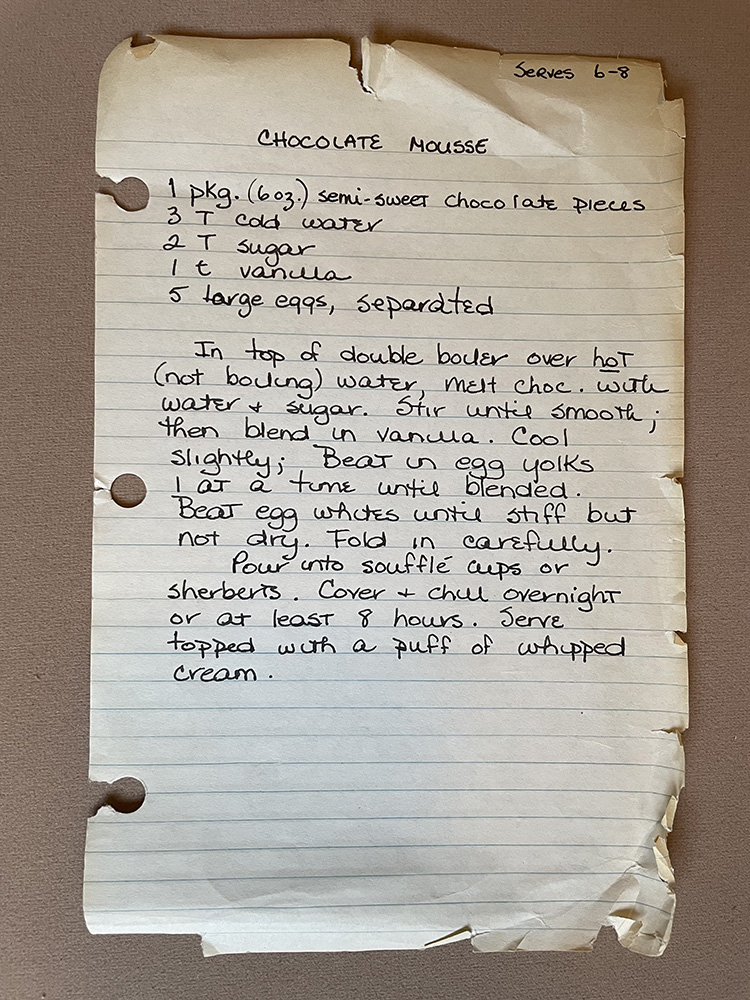 Serves 6-8
CHOCOLATE MOUSSE
1 pkg. (6 oz.) semi-sweet chocolate pieces
3 T cold water
2 T sugar
1 t vanilla
5 large eggs, separated
In top of double boiler over hot
(not boiling) water, melt choc. with
water + sugar. Stir until smooth;
then blend in vanilla. Cool
slightly; Beat in egg yolks
1 at a time until blended.
Beat egg whites until stiff but
not dry. Fold in carefully.
Pour into soufflé cups or
sherberts. Cover + chill overnight
or at least 8 hours. Serve
topped with a puff of whipped
cream.